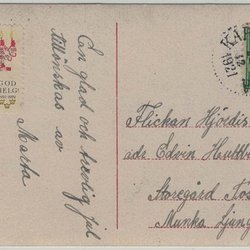 GOD
HELG!
En glad och trevlig jul
tillönskas av
Marta
Flickan Hjördis
adr Edvin
Aaregård
Munka Ljung